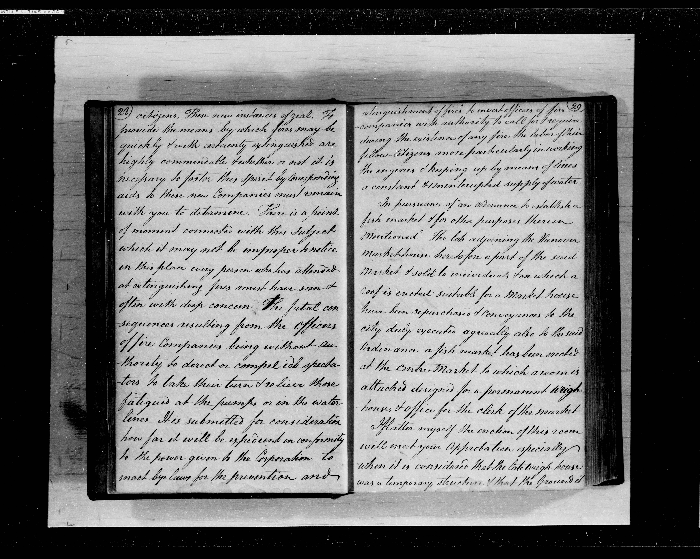 28
citizens. These new instances of zeal. To
provide the means by which fires may be
quickly & with certainty extinguished are
highly commendable & whether or not it is
necessary to foster this spirit by Corresponding
aids to these new Companies must remain
with you to determine. There is a point
of moment connected with this Subject
which it may not be improper to notice
in this place every person who has attended
at extinguishing fires must have seen &
often with deep concern. The fatal con
sequences resulting from the officers
of fire Companies being without au
thority to direct or compel idle specta-
tors to take their turn & relieve those
fatigued at the pumps or on the water
lines. It is submitted for consideration
how far it will be expedient in conformity
to the power given to the Corporation to
make by laws for the prevention and
29
extinguishment of fires to invest officers of fire
companies with authority to call for & require
during the existence of any fire the labor of their
fellow Citizens more particularly in working
the engines & keeping up by means of lines
a constant & uninterrupted supply of water
In pursuance of an ordinance to establish a
fish market & for other purposes therein
Mentioned. The lots adjoining the Hanover
Market house heretofore a part of the said
Market & sold to individuals & on which a
roof is erected suitable for a Market house
have been repurchased & Conveyances to the
city duly executed agreeably also to the said
Ordinance a fish market has been erected
at the Centre Market to which a room is
attached designed for a permanent weigh
house & office for the clerk of the market
I flatter myself the erection of this room
will meet your Approbation especially
when it is considered that the late weigh house
was a temporary structure & that the Ground it